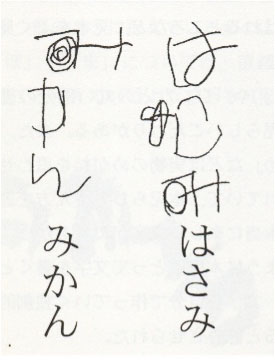 はさみ
はさみ
みかん
みかん